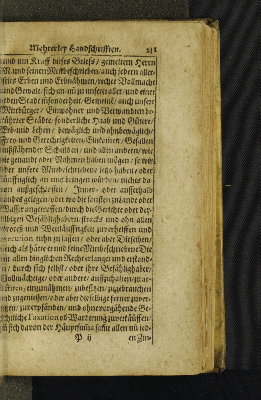 Mehrerley Handschrifften. 211
und im Krafft dises Brieffs / gemeltem Herrn
N. und seinen Mitbeschriebnen / auch jedem aller-
seits Erben und Erbnähmen / rechte Vollmacht
und Gewalt / sich an zu unserer aller / und einer
jeden Stadt sonderheit Gemeine / auch unsere
Mitbürger / Einwohner und Verwandten be-
rührter Städte / sonderliche Haab und Gütere /
Erb und Lehen / beweglich und ohnbeweglich /
Frey- und Gerechtigkeiten / Einkomen / Gefällen
außständigen Schulden / und allen anderm / wie
die genandt oder Nahmen haben mögen / so wir
oder unsere Mitbeschriebene jetzo haben / oder
künfftiglich an uns bringen würden / nichts da-
von außgeschlossen / Inner- oder ausserhalb
Landes gelegen / oder wo die sonsten zu Lande oder
Wasser angetroffen / durch die Gerichte oder der-
selbigen Befählichhabern / stracks und ohn allen
Proceß und Weitläufftigkeit zu verhelffen und
execution zu thun zu lassen / oder aber Dieselben /
gleich als hätte er und seine Mitbeschriebene Die
mit allen dinglichen Rechten erlanget und erstand-
en / durch sich selbst / oder ihre Befählighaber /
Vollmächtige / oder andere / auffzuhalten / zu ar-
restiren / einzunähmen / zubesitzen / zugebrauchen
und zugeniessen / oder aber dieselbige ferner zuver-
setzen / zuverpfänden / und ohne vorgähende Ge-
richtliche Taxation od Warderung zuverkäuffen /
und sich davon der Häuptsuma sampt allen uñ jed-
P ij en Zin-